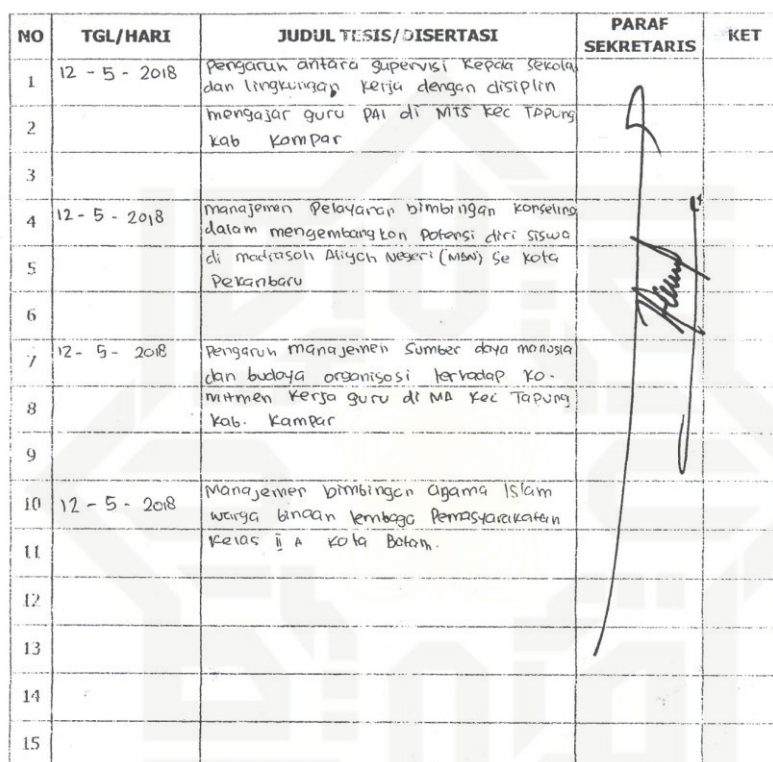 NO TGL/HARI JUDUL TESIS/DISERTASI PARAF SEKRETARIS KET
1 12 - 5 - 2018 Pengaruh antara supervisi Kepala sekola
dan lingkungan kerja dengan disiplin
2 mengajar guru PAI di MTS Kec Tapung
kab Kampar
3
4 12 - 5 - 2018 manajemen Pelayanan bimbingan Konseling
dalam mengembangkan Potensi diri siswa
5 di madrasah Aliyah Negeri (MAN) Se Kota
Pekanbaru
6
7 12 - 5 - 2018 Pengaruh manajemen Sumber daya manusia
dan budaya organisasi terhadap Ko-
8 mitmen Kerja guru di MA Kec Tapung
Kab. Kampar
9
10 12 - 5 - 2018 Manajemen bimbingan agama Islam
warga binaan lembaga Pemasyarakatan
11 Kelas ii A Kota Batam.
12
13
14
15